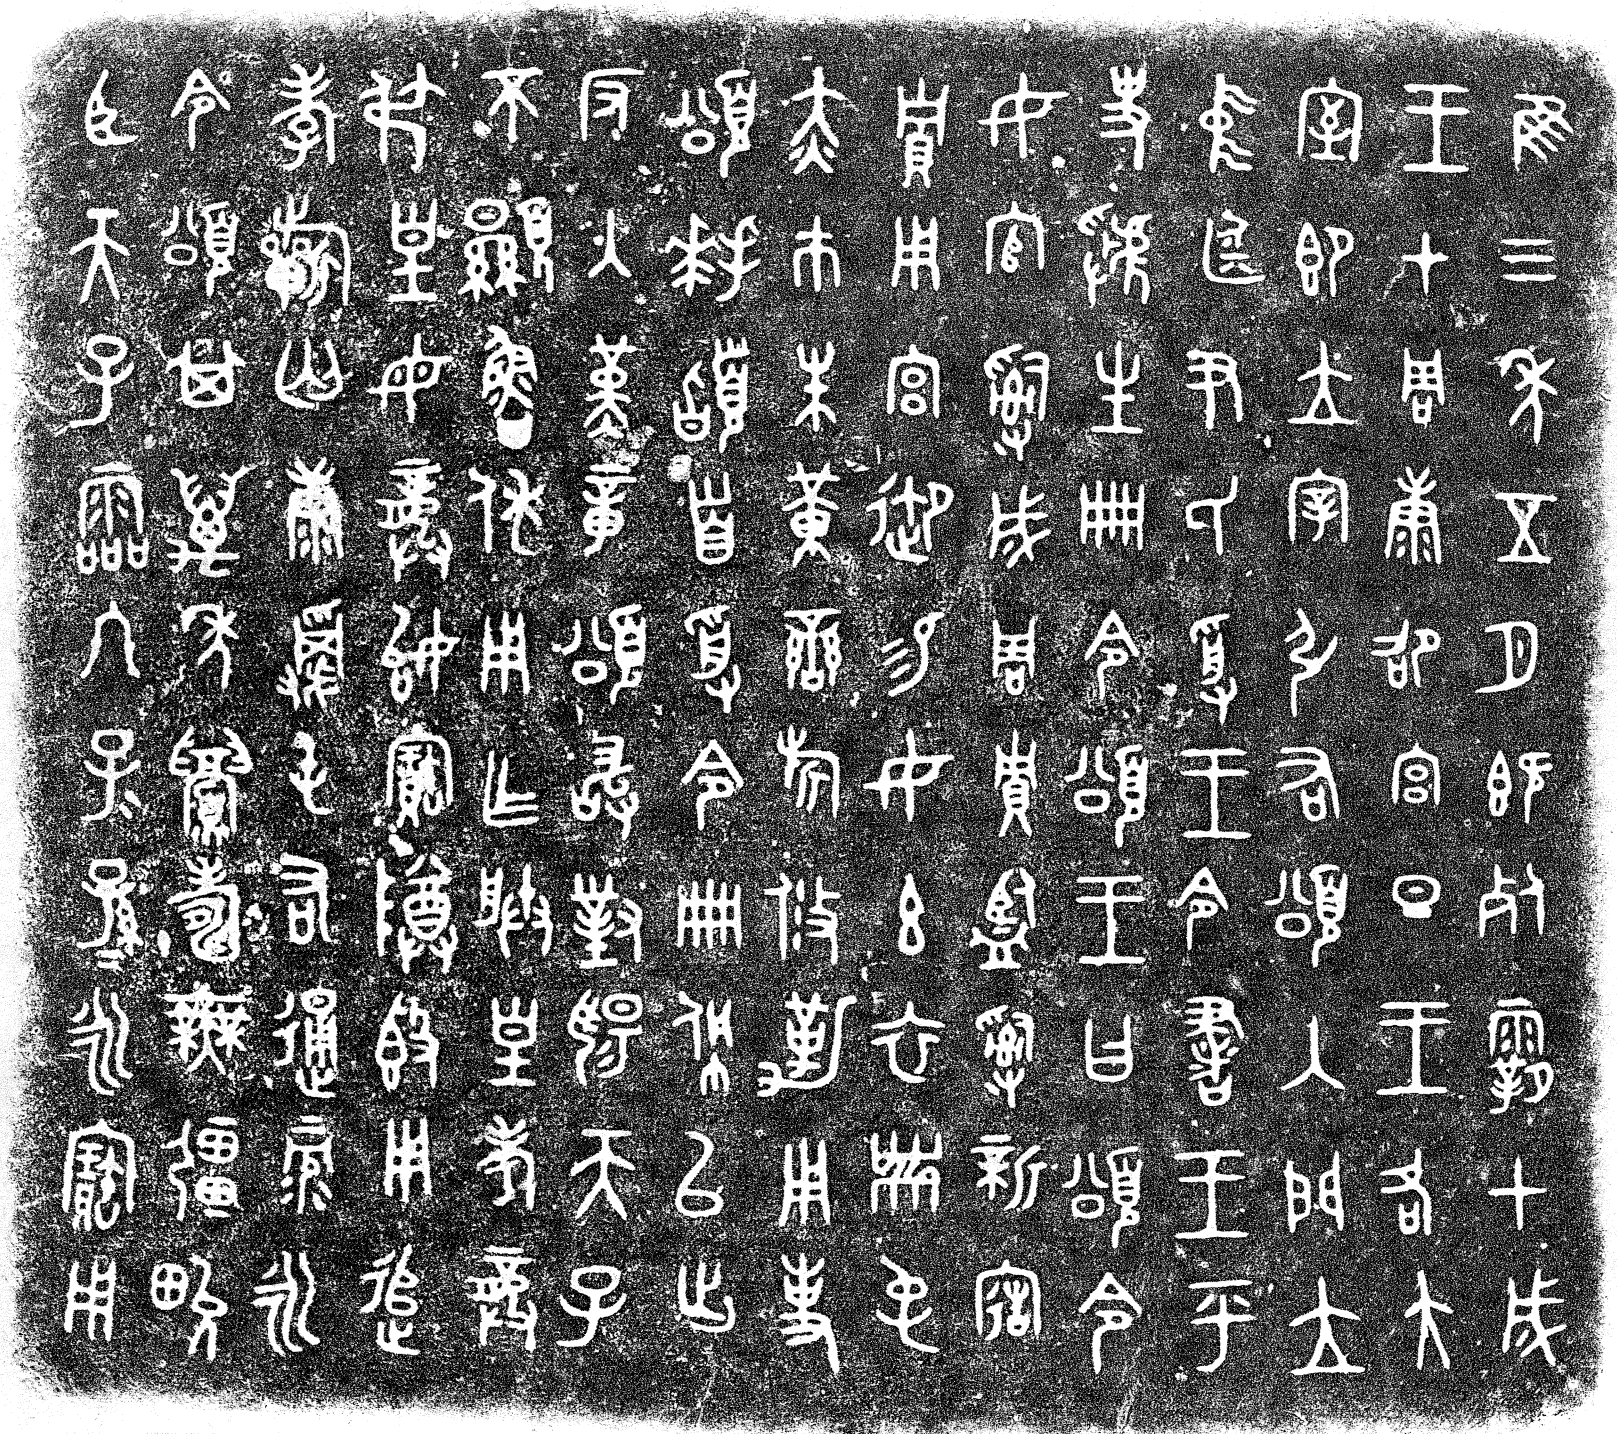 隹三年五月既死霸甲戌
王才周康卲宮旦王各大
室即立宰弘右頌入門立
中廷尹氏受王令書王乎
史虢生冊令頌王曰頌令
女官𤔲成周貯監𤔲新造
貯用宮御易女玄衣黹屯
赤巿朱黃䜌旂攸勒用事
頌拜𩒨首受令冊佩㠯出
反入堇章頌敢對揚天子
不顯魯休用乍朕皇考龏
弔皇母龏始寶尊簋用追
孝𣄨匄康𩁹屯右通彔永
令頌其萬年眉壽無疆畯
臣天子霝冬子=孫=永寶用